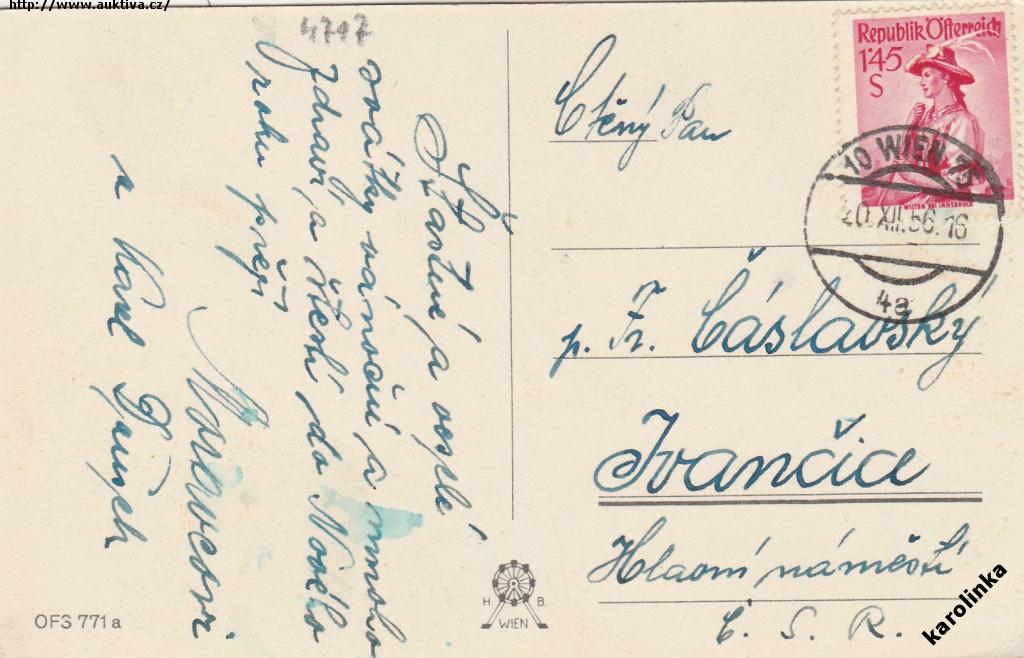 http://www.auktiva.cz/
4717
Šťastné a veselé
svátky vánoční a mnoho
zdraví a štěstí do Nového
roku přeje
a Karel
Ctěný Pan
p. Fr. Čáslavský
Ivančice
Hlavní náměstí
Č. S. R.
Republik Österreich
1'45
S
WILTEN BEI INNSBRUCK
10 WIEN 75
20.XII.56.16
4a
H. B.
WIEN
OFS 771 a
karolinka